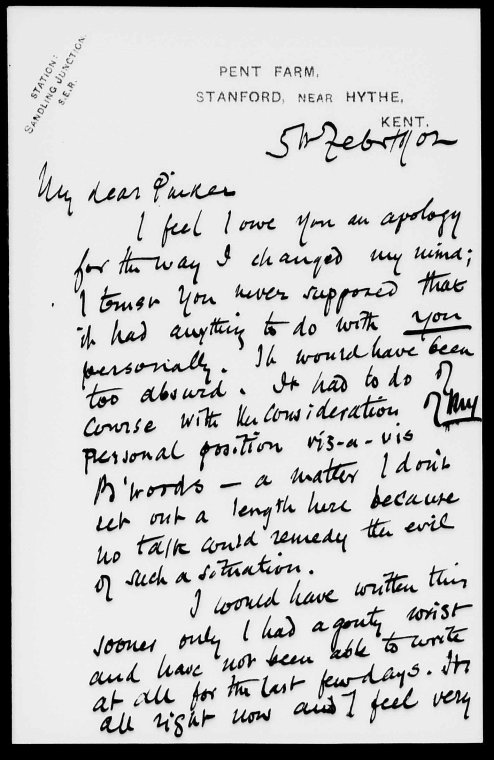 STATION:
SANDLING JUNCTION.
S.E.R.
PENT FARM,
STANFORD, NEAR HYTHE,
KENT.
5th Febr 1902
My dear Pinker
I feel I owe you an apology
for the way I changed my mind;
I trust you never supposed that
it had anything to do with you
personally. It would have been
too absurd. It had to do of
course with the consideration of my
personal position vis-a-vis
B'woods – a matter I don't
set out a length here because
no talk could remedy the evil
of such a situation.
I would have written this
sooner only I had a gouty wrist
and have not been able to write
at all for the last few days. Its
all right now and I feel very